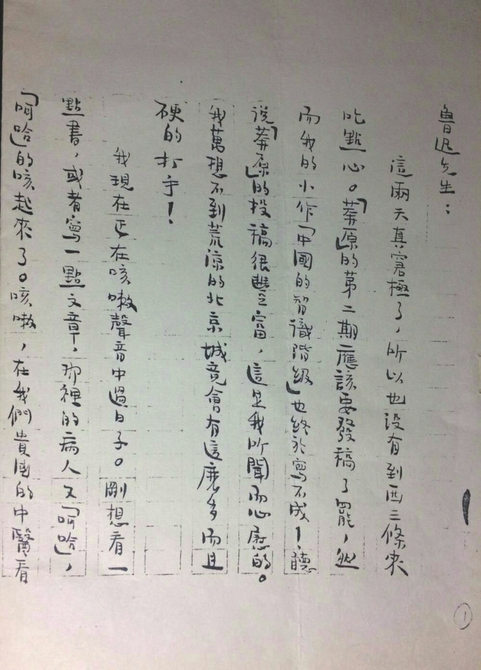 魯迅先生：
這兩天真窘極了，所以也没有到西三條來
吃點心。「莽原」的第二期應該要發稿了罷，然
而我的小作「中國的智識階級」也終於寫不成！聽
説「莽原」的投稿很豐富，這是我所聞而心慰的。
我萬想不到荒凉的北京城竟會有這麽多而且
硬的打手！
我現在正在咳嗽聲音中過日子。剛想看一
點書，或者寫一點文章，那裡的病人又「呵哈」，
「呵哈」的咳起來了。咳嗽，在我們貴国的中醫看
1